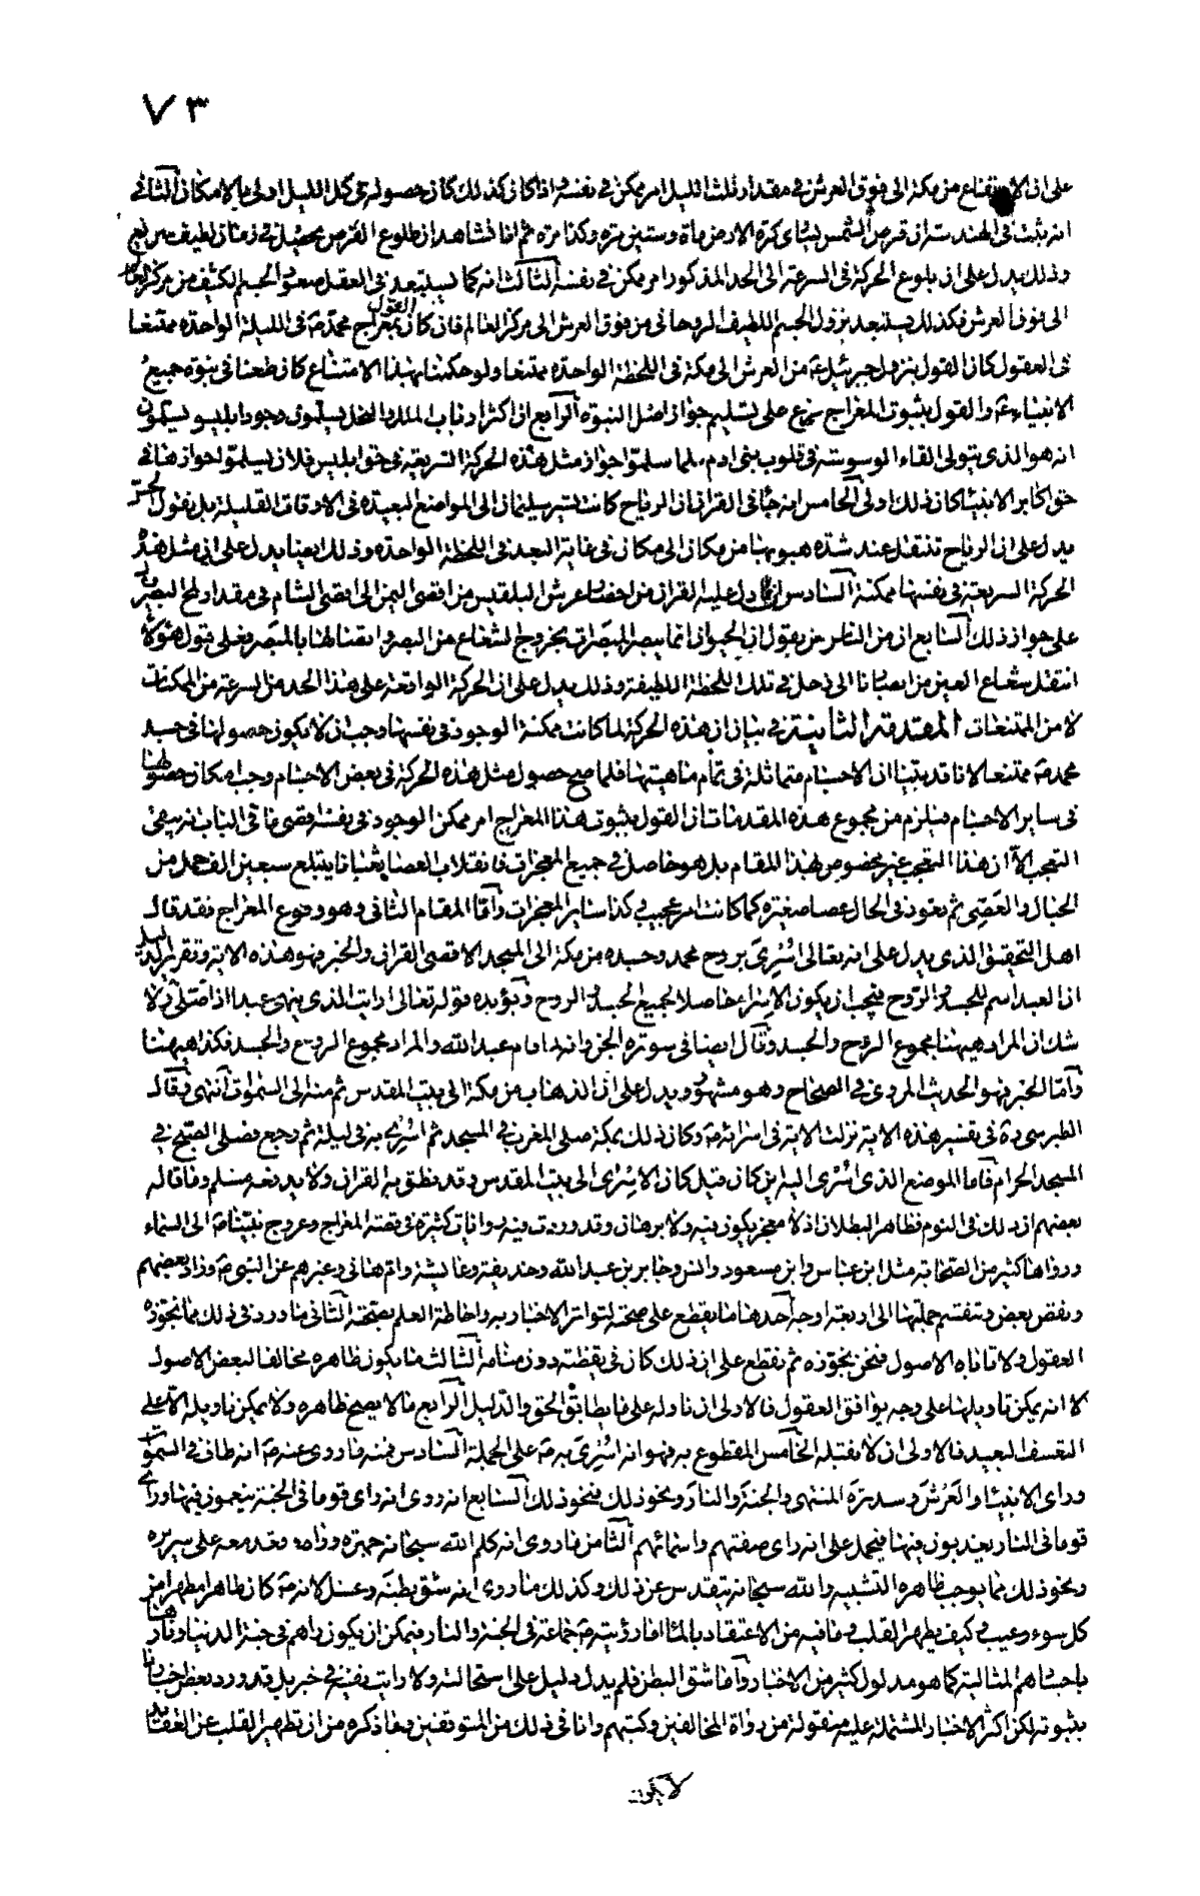 ٧٣
على ان الارتفاع من مكة الى فوق العرش في مقدار ثلث الليل امر ممكن في نفسه واذا كان كذلك كان حصوله في كل الليل اولى بالامكان الثاني
انه ثبت في الهندسة ان قرص الشمس يساوى كرة الارض ماة وستين مرة وكذا مرة ثم انا نشاهد ان طلوع القرص يحصل في زمان لطيف سريع
وذلك يدل على ان بلوغ الحركة في السرعة الى الحد المذكور امر ممكن في نفسه الثالث انه كما يستبعد في العقل صعود الجسم الكثيف من مركز العالم
الى فوق العرش فكذلك يستبعد نزول الجسم اللطيف الروحاني من فوق العرش الى مركز العالم فان كان القول بمعراج محمد ص في الليلة الواحدة ممتنعا
في العقول كان القول بنزول جبرئيل ع من العرش الى مكة في اللحظة الواحدة ممتنعا ولو حكمنا بهذا الامتناع كان طعنا في نبوة جميع
الانبياء ع والقول بثبوت المعراج فرع على تسليم جواز اصل النبوة الرابع ان اكثر ارباب الملل والنحل يسلمون وجود ابليس ويسلمون
انه هو الذى يتولى القاء الوسوسة في قلوب بنى ادم فلما سلموا جواز مثل هذه الحركة السريعة في حق ابليس فلان يسلموا جواز هنا في
حق اكابر الانبياء كان ذلك اولى الخامس انه جاء في القران ان الرياح كانت تسير سليمان الى المواضع البعيدة في الاوقات القليلة بل نقول الحس
يدل على ان الرياح تنتقل عند شدة هبوبها من مكان الى مكان في غاية البعد في اللحظة الواحدة وذلك ايضا يدل على ان مثل هذه
الحركة السريعة في نفسها ممكنة السادس ان ما دل عليه القران من احضار عرش البلقيس من اقصى اليمن الى اقصى الشام في مقدار لمح البصر يدل
على جواز ذلك السابع ان من الناس من يقول ان الحيوان انما يبصر المبصرات بخروج الشعاع من البصر واتصالها بالمبصر فعلى قول هؤلاء
انتقل شعاع العين من ابصارنا الى زحل في تلك اللحظة اللطيفة وذلك يدل على ان الحركة الواقعة على هذا الحد من السرعة من الممكنات
لا من الممتنعات المقدمة الثانية في بيان ان هذه الحركة لما كانت ممكنة الوجود في نفسها وجب ان لا يكون حصولها في جسد
محمد ص ممتنعا لانا قد بينا ان الاجسام متماثلة في تمام ماهيتها فلما صح حصول مثل هذه الحركة في بعض الاجسام وجب امكان حصولها
في ساير الاجسام فيلزم من مجموع هذه المقدمات ان القول بثبوت هذا المعراج امر ممكن الوجود في نفسه اقصى ما في الباب انه يبقى
التعجب الا ان هذا التعجب غير مخصوص بهذا المقام بل هو حاصل في جميع المعجزات فانقلاب العصا ثعبانا يبتلع سبعين الف حمل من
الحبال والعصى ثم تعود في الحال عصا صغيرة كما كانت امر عجيب وكذا ساير المعجزات واما المقام الثاني وهو وقوع المعراج فقد قال
اهل التحقيق الذى يدل على انه تعالى اسرى بروح محمد وجسده من مكة الى المسجد الاقصى القران والخبر فهو هذه الاية وتقرير الدليل
ان العبد اسم للجسد والروح فيجب ان يكون الاسراء حاصلا لجميع الجسد والروح ويؤيده قوله تعالى ارايت الذى ينهى عبدا اذا صلى ولا
شك ان المراد هيهنا مجموع الروح والجسد وقال ايضا في سورة الجن وانه لما قام عبد الله والمراد مجموع الروح والجسد فكذا هيهنا
واما الخبر فهو الحديث المروى في الصحاح وهو مشهور ويدل على ان الذهاب من مكة الى بيت المقدس ثم منه الى السموات انتهى وقال
الطبرسي ره في تفسير هذه الاية نزلت الاية في اسرائه ص وكان ذلك بمكة صلى المغرب في المسجد ثم اسرى به في ليلة ثم رجع فصلى الصبح في
المسجد الحرام فاما الموضع الذى اسرى اليه اين كان قيل كان الاسرى الى بيت المقدس وقد نطق به القران ولا يدفعه مسلم وما قاله
بعضهم ان ذلك في النوم فظاهر البطلان اذ لا معجز يكون فيه ولا برهان وقد وردت فيه روايات كثيرة في قصة المعراج وعروج نبينا ص الى السماء
ورواها كثير من الصحابة مثل ابن عباس وابن مسعود وانس وجابر بن عبد الله وحذيفة وعايشة وام هاني وغيرهم عن النبي ص وزاد بعضهم
ونقص بعض وتنقسم جملتها الى اربعة اوجه احدها ما يقطع على صحته لتواتر الاخبار به واحاطة العلم بصحته الثاني ما ورد في ذلك مما تجوزه
العقول ولا تاباه الاصول فنحن نجوزه ثم نقطع على ان ذلك كان في يقظته دون منامه الثالث ما يكون ظاهره مخالفا لبعض الاصول
الا انه يمكن تاويلها على وجه يوافق العقول فالاولى ان ناوله على ما يطابق الحق والدليل الرابع ما لا يصح ظاهره ولا يمكن تاويله الا على
التعسف البعيد فالاولى ان لا نقبله الخامس المقطوع به فهو انه اسرى به ص على الجملة السادس فمنه ما روى عنه ص انه طاف في السموات
وراى الانبياء والعرش وسدرة المنتهى والجنة والنار ونحو ذلك فنحو ذلك السابع انه روى انه راى قوما في الجنة ينعمون فيها وراى
قوما في النار يعذبون فيها فيحمل على انه راى صفتهم واسمائهم الثامن ما روى انه كلم الله سبحانه جهرة وراه وقعد معه على سريره
ونحو ذلك مما يوجب ظاهره التشبيه والله سبحانه يتقدس عن ذلك وكذلك ما روى انه شق بطنه وغسل لانه ص كان طاهرا مطهرا من
كل سوء وعيب وكيف يطهر القلب وما فيه من الاعتقاد بالماء اما رؤيته ص جماعة في الجنة والنار فيمكن ان يكون راهم في جنة الدنيا ونارها
باجسادهم المثالية كما هو مدلول كثير من الاخبار واما شق البطن فلم يدل دليل على استحالته ولا رايت نفيه في خبر بل قد ورد بعض اخبارنا
بثبوته لكن اكثر الاخبار المشتملة عليه منقولة من رواة المخالفين وكتبهم وانا في ذلك من المتوقفين وما ذكره من ان تطهير القلب عن العقايد
لا يكون